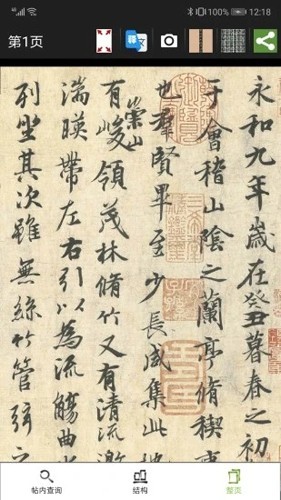 100% 12:18
第1页
永和九年歲在癸丑暮春之初
于會稽山陰之蘭亭脩稧事
也羣賢畢至少長咸集此地
有崇山峻領茂林脩竹又有清流激
湍暎帶左右引以為流觴曲水
列坐其次雖無絲竹管弦之
帖内查询
结构
整页